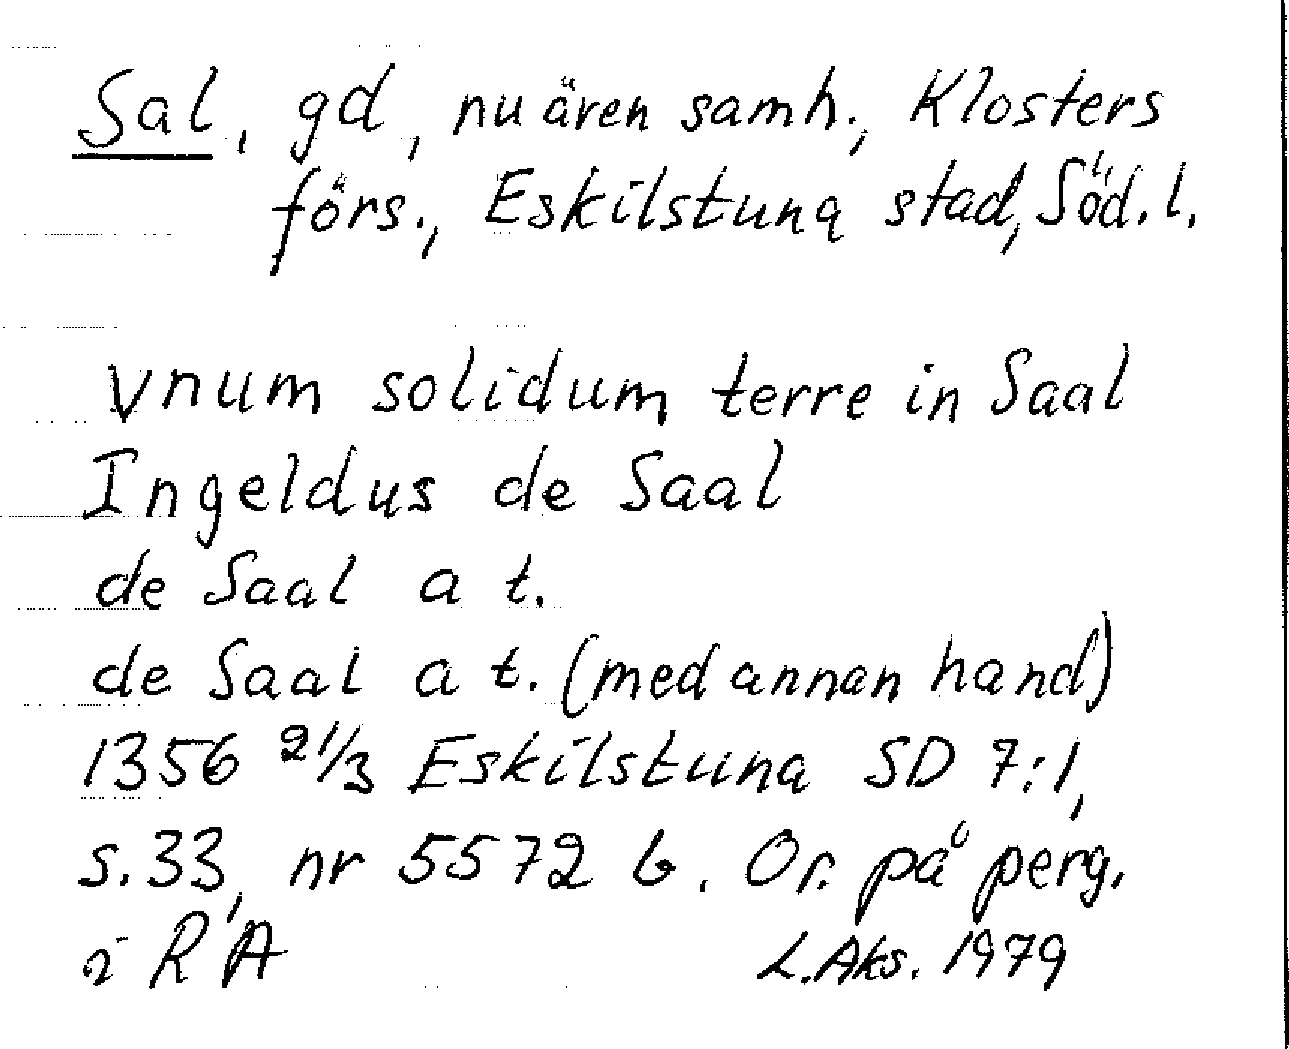 Sal, gd, nu även samh., Klosters
förs., Eskilstuna stad, Söd. l.
Vnum solidum terre in Saal
Ingeldus de Saal
de Saal a t.
de Saal a t. (med annan hand)
1356 21/3 Eskilstuna SD 7:1,
s. 33, nr 5572 b. Or. på perg.
i RA L. Aks. 1979